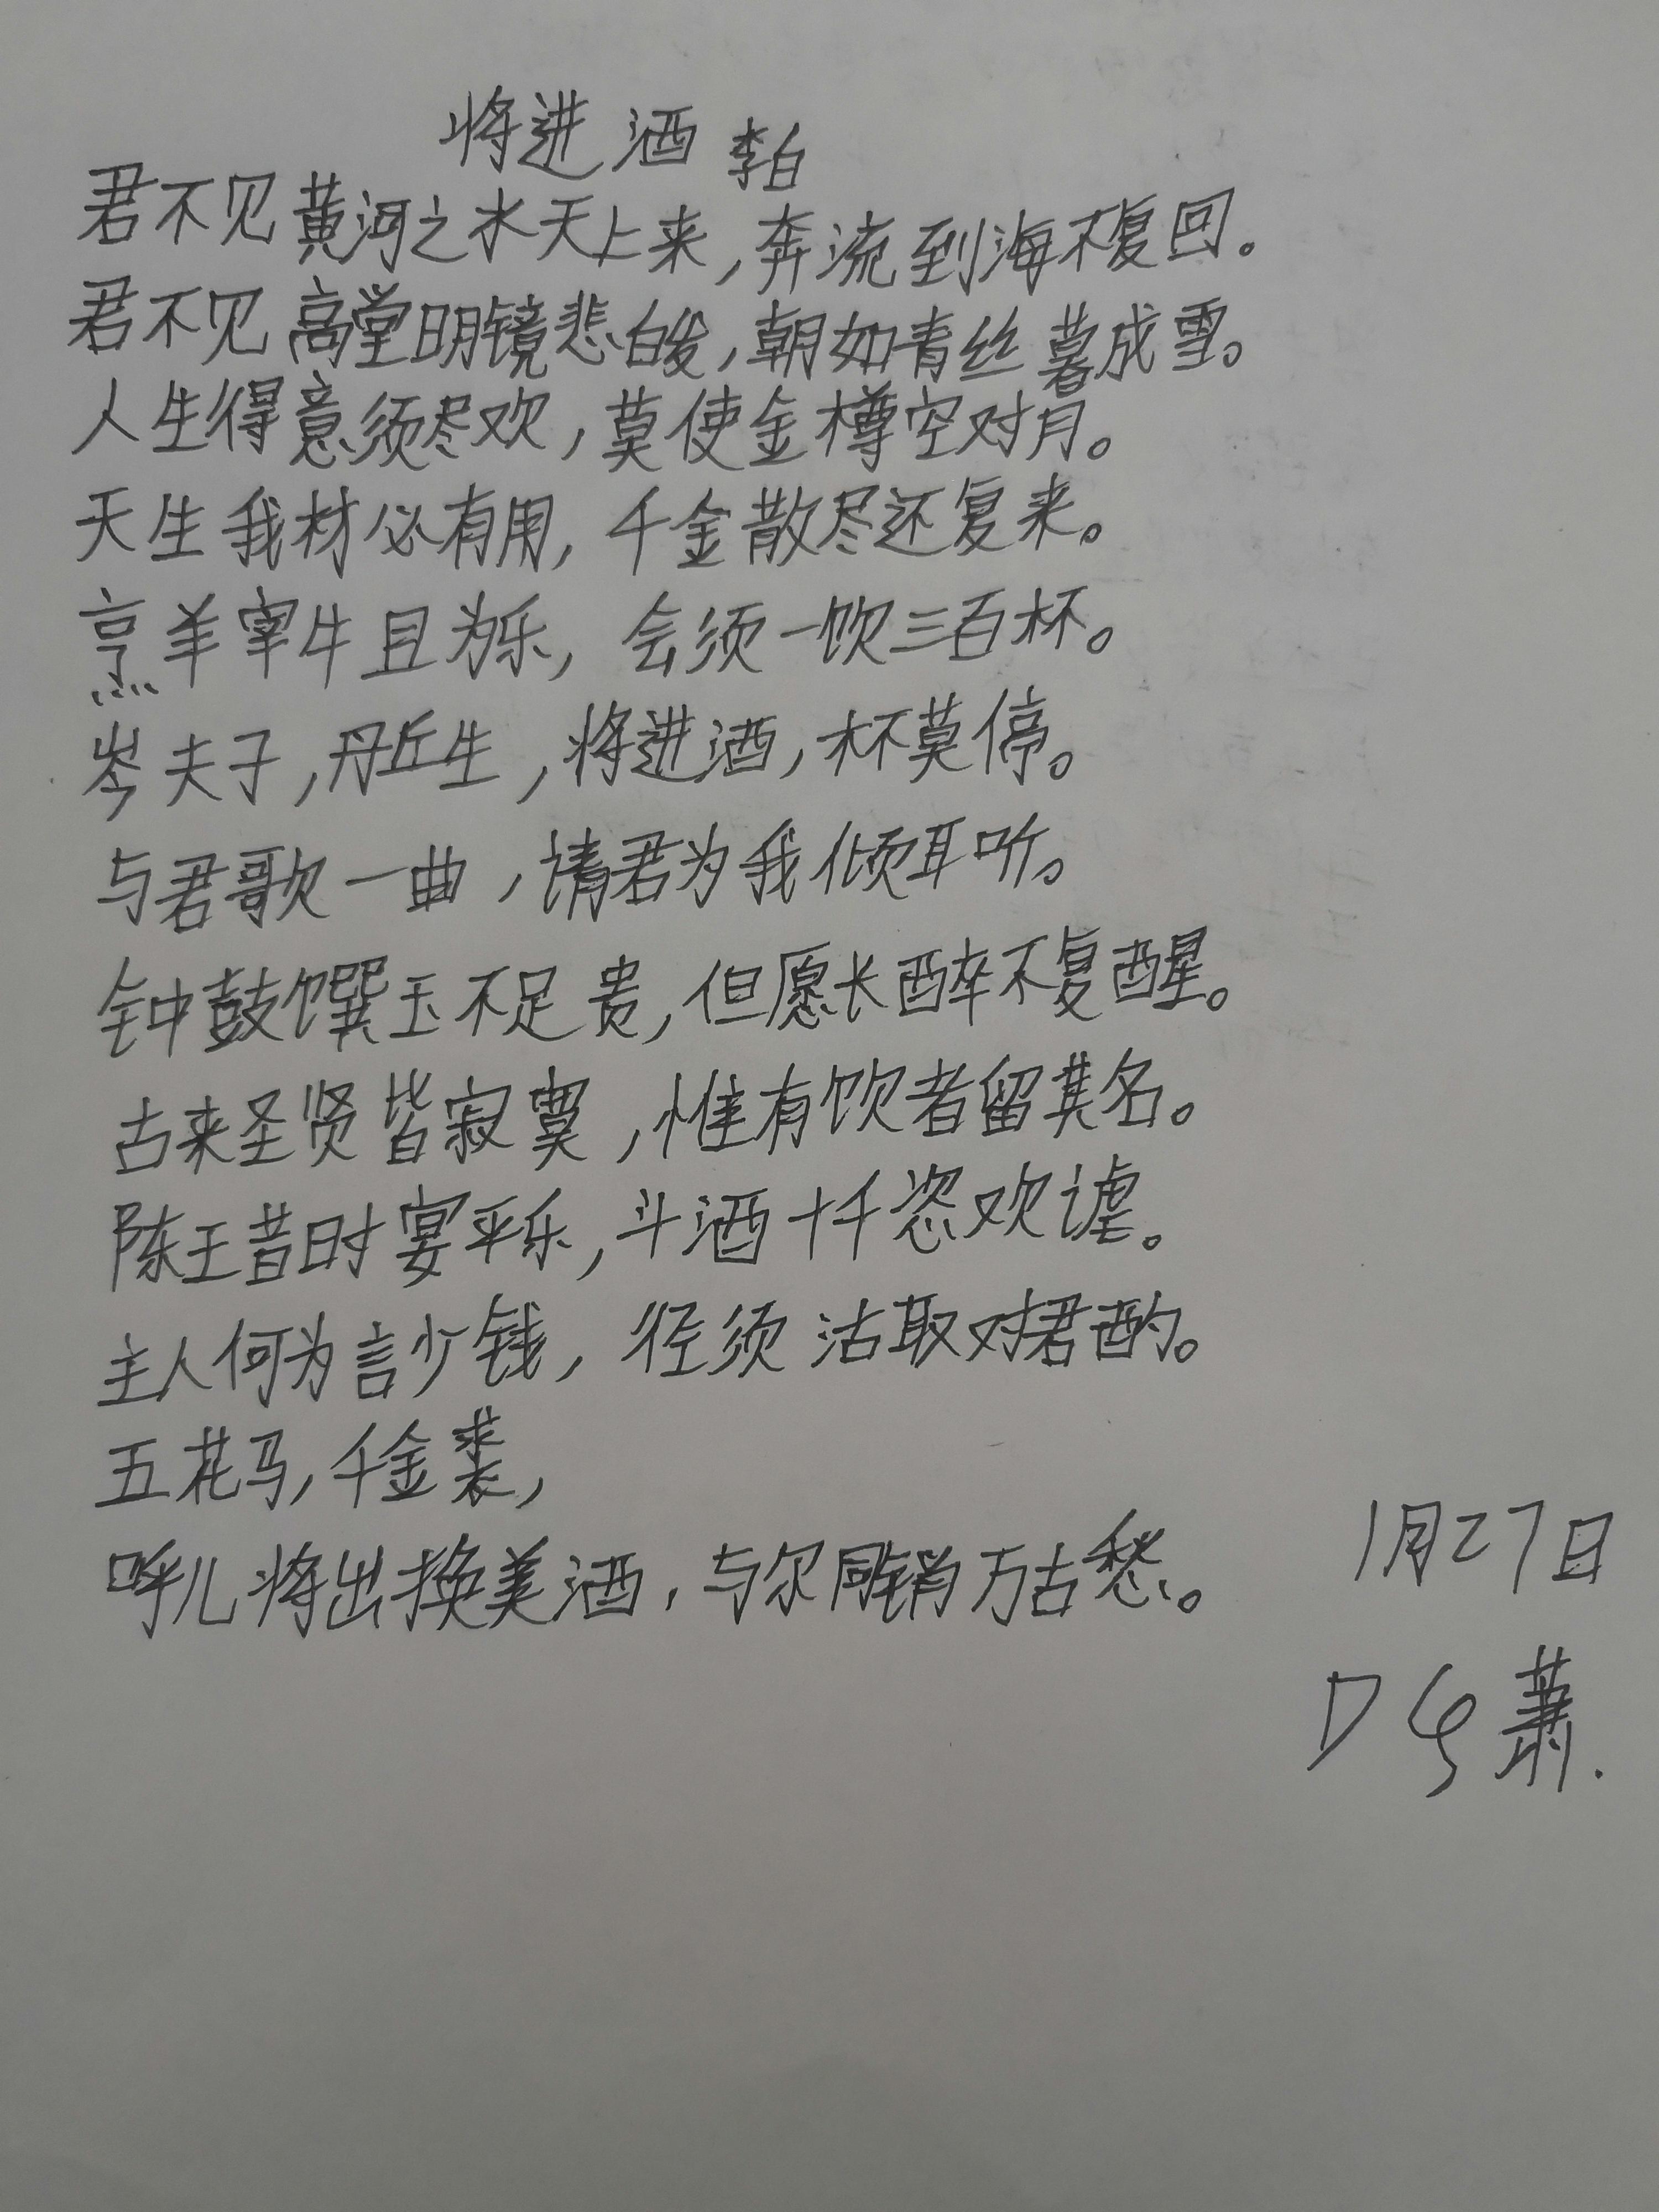 将进酒 李白
君不见黄河之水天上来,奔流到海不复回。
君不见高堂明镜悲白发,朝如青丝暮成雪。
人生得意须尽欢,莫使金樽空对月。
天生我材必有用,千金散尽还复来。
烹羊宰牛且为乐,会须一饮三百杯。
岑夫子,丹丘生,将进酒,杯莫停。
与君歌一曲,请君为我倾耳听。
钟鼓馔玉不足贵,但愿长醉不复醒。
古来圣贤皆寂寞,惟有饮者留其名。
陈王昔时宴平乐,斗酒十千恣欢谑。
主人何为言少钱,径须沽取对君酌。
五花马,千金裘,
呼儿将出换美酒,与尔同销万古愁。
1月27日
萧.